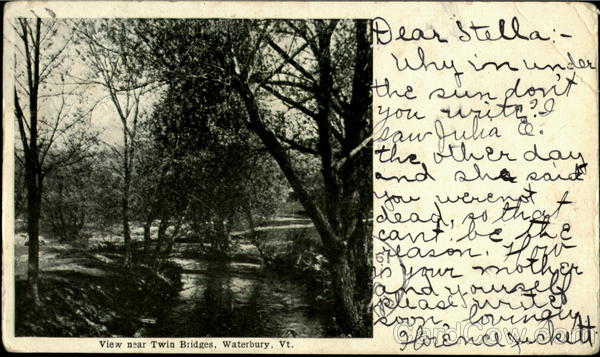 Dear Stella:-
Why in under
the sun don't
you write? I
saw Julia E.
the other day
and she said
you were not
dead, so that
can't be the
reason. How
is your mother
and yourself
please write
soon lovingly
Florence Puckett
View near Twin Bridges, Waterbury, Vt.
CardCow.com